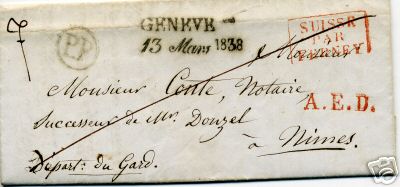 PP
GENEVE
13 Mars 1838
SUISSE
PAR
FERNEY
Monsieur
Monsieur Conte, Notaire
Successeur de Mr. Douzel
A.E.D.
à Nimes.
Départ. du Gard.